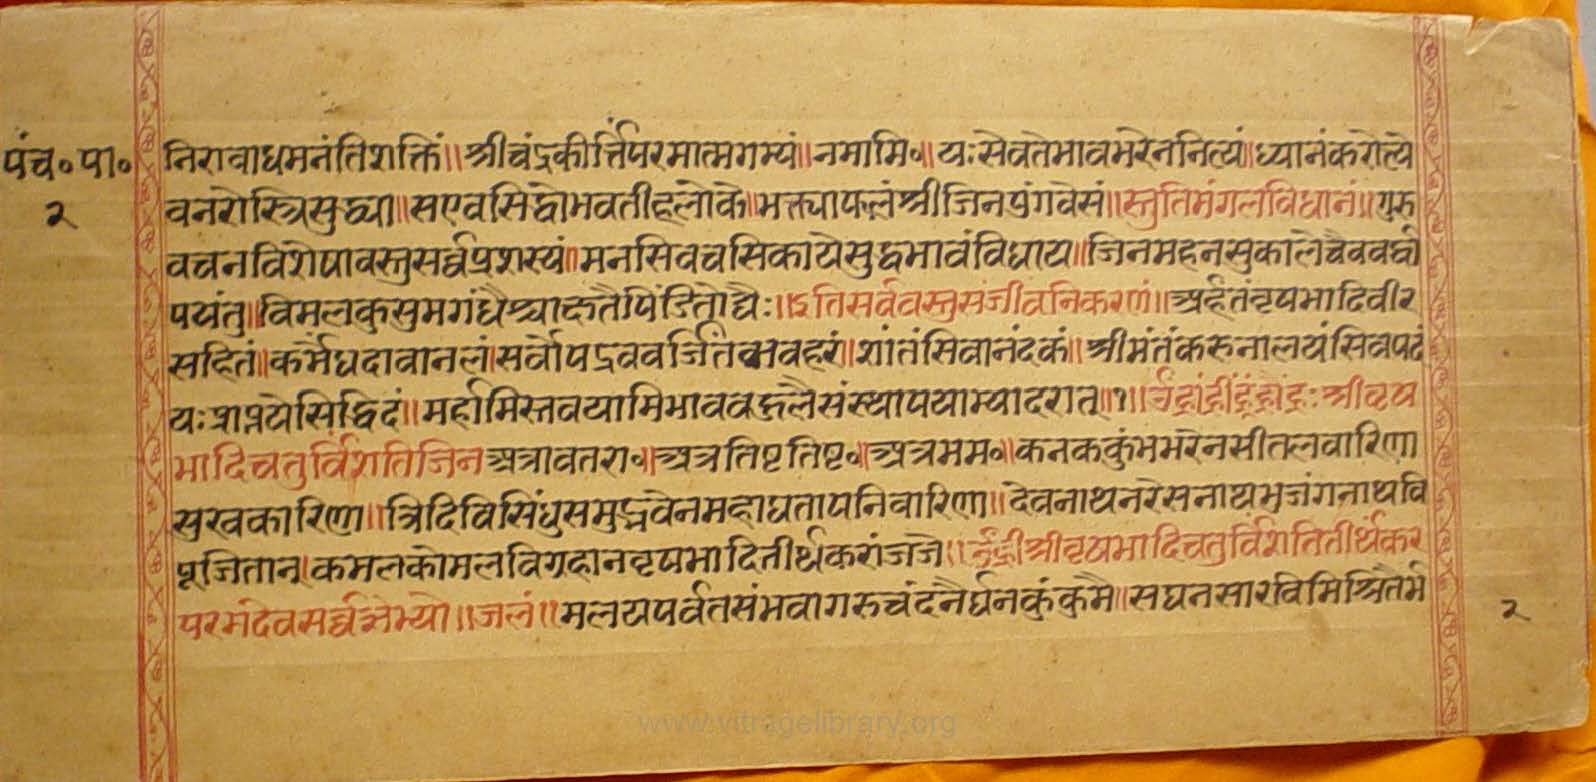 पंच॰पा॰
२
निरावाधमनंतिशक्तिं॥श्रीचंद्रकीर्त्तिंपरमात्मगम्यं॥नमामि॰॥यःसेवतेभावभरेननित्यं॥ध्यानंकरोत्ये
वनरोस्त्रिसुद्ध्या॥सएवसिद्धोभवतीहलोके॥भक्त्याफलंश्रीजिनपुंगवेसं॥स्तुतिमंगलविधानं॥गुरु
वचनविशेषावस्तुसर्व्वप्रशस्यं॥मनसिवचसिकायेसुद्धभावंविधाय॥जिनमहनसुकालेचैव
पयंतु॥विमलकुसुमगंधैश्चाक्षतैपिंडितोद्यैः॥इतिसर्ववस्तुसंजीवनिकरणं॥अर्हंतंवृषभादिवीर
सहितं॥कर्मैघदावानलं।सर्वोपद्रववर्जितंभवहरं।शांतंसिवानंदकं॥श्रीमंतंकरुनालयंसिवपदं
यःप्राप्नयेसिद्धिदं॥महामिस्तवयामिभाववकुलैसंस्थापयाम्यादरात्॥१॥श्रीवृष
भादिचतुर्विंशतिजिनअत्रावतरा॰॥अत्रतिष्टतिष्ट॰॥अत्रमम॰॥कनककुंभभरेनसीतलवारिणा
सुखकारिणा॥त्रिदिविसिंधुसमुद्भवेनमहाघतापनिवारिणा॥देवनाथनरेसनाथभुजंगनाथवि
पूजितान्।कमलकोमलविग्रहानवृषभादितीर्थकरांजजे॥उँह्रीश्रीवृषभादिचतुर्विंशतितीर्थंकर
परमदेवसर्व्वज्ञेभ्यो॥जलं॥मलयपर्वतसंभवागरुचंदनैर्घनकुंकुमै॥सघनसारविमिश्रितैर्भ
२
www.vitragelibrary.org